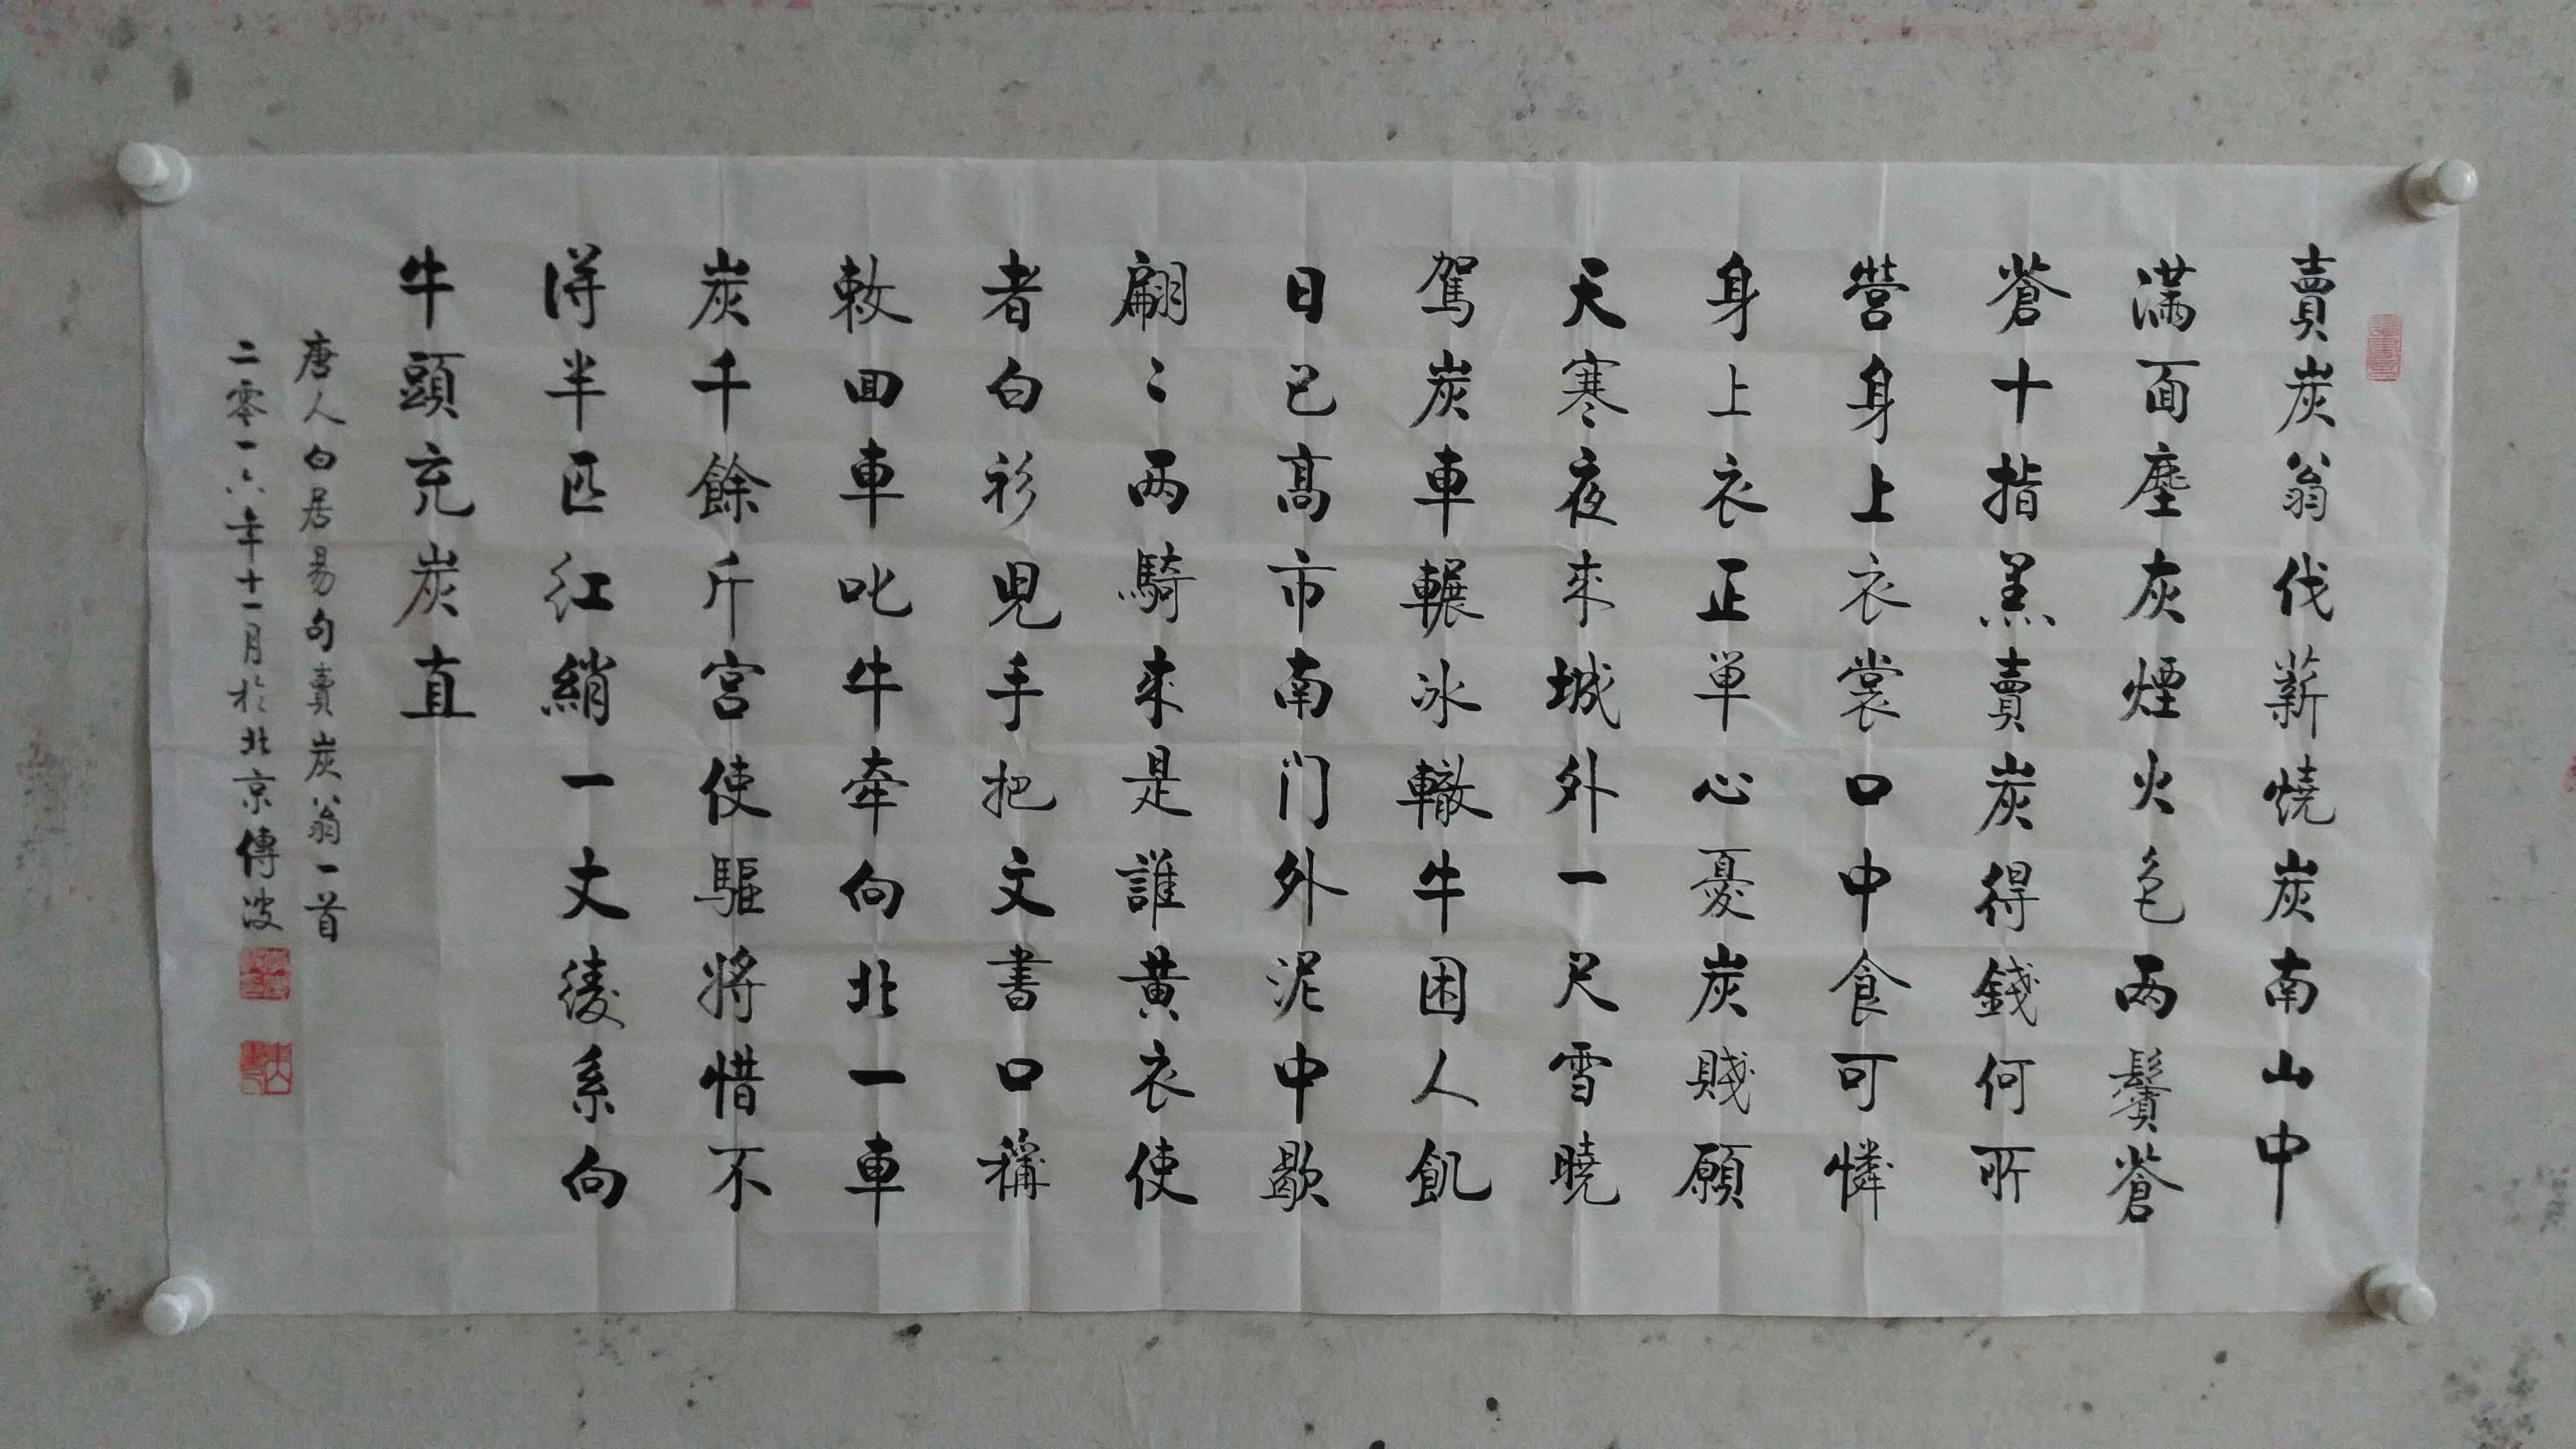 賣炭翁伐薪燒炭南山中
滿面塵灰煙火色兩鬢蒼
蒼十指黑賣炭得錢何所
營身上衣裳口中食可憐
身上衣正单心憂炭賤願
天寒夜來城外一尺雪曉
駕炭車輾冰轍牛困人飢
日已髙市南门外泥中歇
翩〻兩騎來是誰黃衣使
者白衫兒手把文書口稱
敕回車叱牛牽向北一車
炭千餘斤宫使驅將惜不
得半匹紅綃一丈綾系向
牛頭充炭直
唐人白居易句賣炭翁一首
二零一六年十一月於北京傳波